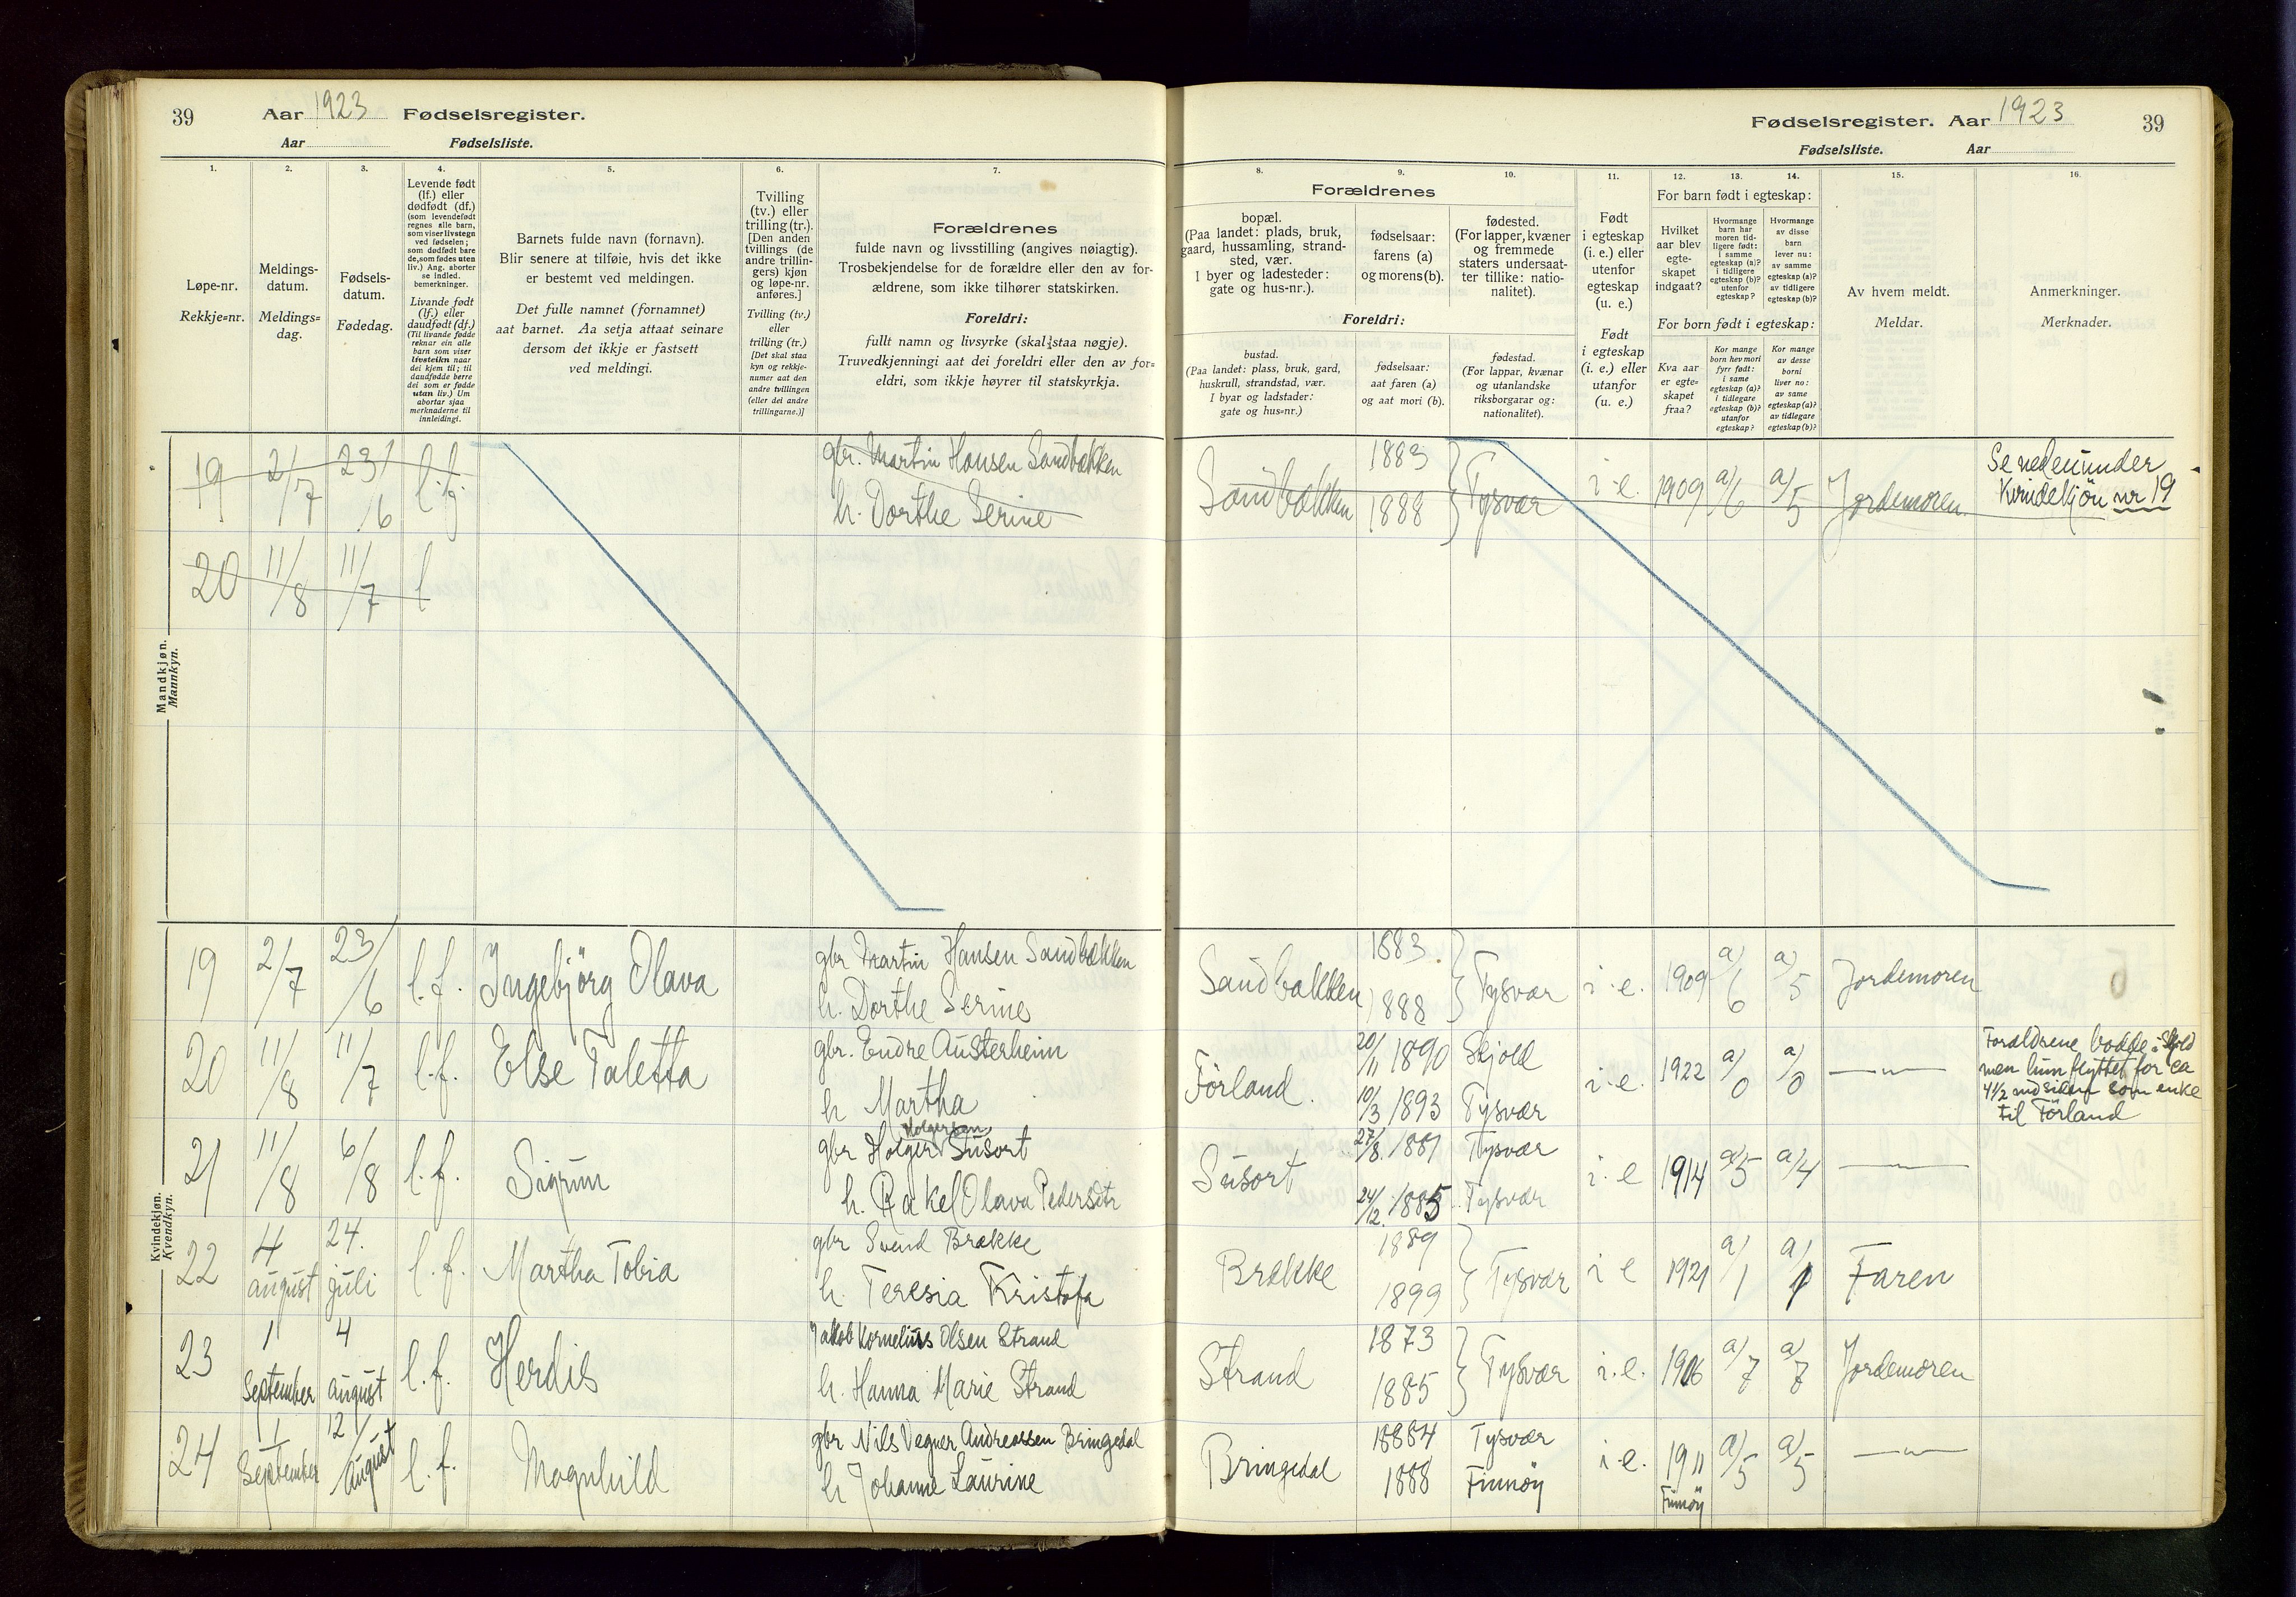 39
Aar 1923 Fødselsregister.
Aar Fødselsliste.
Fødselsregister. Aar 1923
39
Fødselsliste. Aar
1.
Løpe-nr.
Rekkje=nr.
2.
Meldings-
datum.
Meldings=
dag.
3.
Fødsels-
datum.
Fødedag.
4.
Levende født
(lf.) eller
dødfødt (df.)
(som levendefødt
regnes alle barn,
som viser livstegn
ved fødselen;
som dødfødt bare
de, som fødes uten
liv.) Ang. aborter
se indled.
bemerkninger.
Livande født
(lf.) eller
daudfødt (df.)
(Til livande fødde
reknar ein alle
barn som viser
livsteikn naar
dei kjem til; til
daudfødde berre
dei som er fødde
utan liv.) Um
abortar sjaa
merknaderne til
innleidingi.
5.
Barnets fulde navn (fornavn).
Blir senere at tilføie, hvis det ikke
er bestemt ved meldingen.
Det fulle namnet (fornamnet)
aat barnet. Aa setja attaat seinare
dersom det ikkje er fastsett
ved meldingi.
6.
Tvilling
(tv.) eller
trilling (tr.).
[Den anden
tvillings (de
andre trillin-
gers) kjøn
og løpe-nr.
anføres.]
Tvilling (tv.)
eller
trilling (tr.)
[Det skal staa
kyn og rekkje-
numer aat den
andre tvillingen
(eller dei andre
trillingarne.)]
7.
Forældrenes
fulde navn og livsstilling (angives nøiagtig).
Trosbekjendelse for de forældre eller den av for-
ældrene, som ikke tilhører statskirken.
Foreldri:
fullt namn og livsyrke (skal staa nøgje).
Truvedkjenningi aat dei foreldri eller den av for=
eldri, som ikkje høyrer til statskyrkja.
8.
Forældrenes
bopæl.
(Paa landet: plads, bruk,
gaard, hussamling, strand-
sted, vær.
I byer og ladesteder:
gate og hus-nr.).
Foreldri:
bustad.
(Paa landet: plass, bruk, gard,
huskrull, strandstad, vær.
I byar og ladstader:
gate og hus=nr.)
9.
fødselsaar:
farens (a)
og morens (b).
fødselsaar:
aat faren (a)
og aat mori (b).
10.
fødested.
(For lapper, kvæner
og fremmede
staters undersaat-
ter tillike: natio-
nalitet).
fødestad.
(For lappar, kvænar
og utanlandske
riksborgarar og:
nationalitet).
11.
Født
i egteskap
(i. e.) eller
utenfor
egteskap
(u. e.)
Født
i egteskap
(i. e.) eller
utanfor
egteskap
(u. e.)
12. 13. 14.
For barn født i egteskap:
Hvilket
aar blev
egte-
skapet
indgaat?
Hvormange
barn har
moren tid-
ligere født:
i samme
egteskap (a)?
i tidligere
egteskap (b)?
utenfor
egteskap?
Hvormange
av disse
barn
lever nu:
av samme
egteskap (a)?
av tidligere
egteskap (b)?
For born født i egteskap:
Kva aar
er egte=
skapet
fraa?
Kor mange
born hev mori
fyrr født:
i same
egteskap (a)?
i tidlegare
egteskap (b)?
utanfor
egteskap?
Kor mange
av desse
borni
liver no:
av same
egteskap (a)?
av tidlegare
egteskap (b)?
15.
Av hvem meldt.
Meldar.
16.
Anmerkninger.
Merknader.
Mandkjøn.
Mannkyn.
19 2/7 23/6 l.f. gbr. Martin Hansen Sandbækken
h. Dorthe Serine
Sandbækken 1883 1888 Tysvær i.e. 1909 a/6 a/5 Jordemoren
Se nedenunder
Kvindekjøn nr 19
20 11/8 11/7 l
Kvindekjøn.
Kvendkyn.
19 2/7 23/6 l.f. Ingebjörg Olava gbr Martin Hansen Sandbækken
h. Dorthe Serine
Sandbækken 1883 1888 Tysvær i.e. 1909 a/6 a/5 Jordemoren
20 11/8 11/7 l.f. Else Taletta gbr. Endre Austerheim
h Martha
Förland. 20/11 1890 Skjold
10/3 1893 Tysvær
i.e. 1922 a/0 a/0 —"—
Forældrene bodde i Skjold
men hun flyttet for ca
4½ md siden som enke
til Förland
21 11/8 6/8 l.f. Sigrun gbr Holger Holgersen Susort
h. Rakel Olava Pedersdtr
Susort 27/8. 1881 Tysvær
24/12. 1885 Tysvær
i.e 1914 a/5 a/4 —"—
22 4 august 24. juli l.f. Martha Tobia gbr Svend Brække
h. Teresia Kristofa
Brække 1889 1899 Tysvær i e 1921 a/1 a/1 Faren
23 1 September 4 august l.f. Herdis Jakob Kornelius Olsen Strand
h. Hanna Marie Strand
Strand 1873 1885 Tysvær i.e. 1906 a/7 a/7 Jordemoren
24 1 September 12/ August l.f. Magnhild gbr Nils Vegner Andreassen Bringedal
h Johanne Laurine
Bringedal 1884 Tysvær
1888 Finnöy
i.e. 1911 Finnöy a/5 a/5 —"—